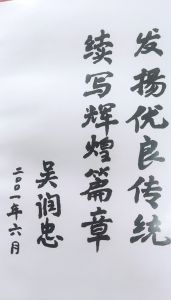 发扬优良传统
续写辉煌篇章
吴润忠
二〇〇一年六月